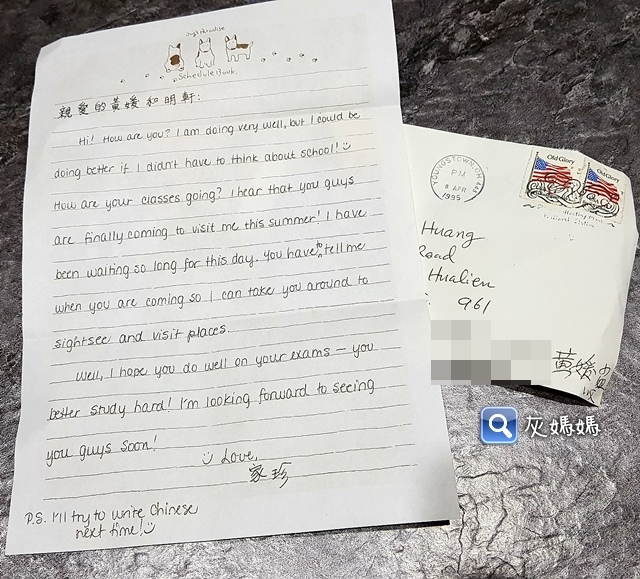 Schedule Book.
親愛的黃媛和明軒:
Hi! How are you? I am doing very well, but I could be
doing better if I didn't have to think about school! ☺
How are your classes going? I hear that you guys
are finally coming to visit me this summer! I have
been waiting so long for this day. You have to tell me
when you are coming so I can take you around to
sightsee and visit places.
Well, I hope you do well on your exams — you
better study hard! I'm looking forward to seeing
you guys soon!
☺ Love,
家珍
P.S. I'll try to write Chinese
next time! ☺
YOUNGSTOWN, OH 445
PM
8 APR
1995
Old Glory
Old Glory
Huang
Road
Hualien
961
黃媛
灰媽媽